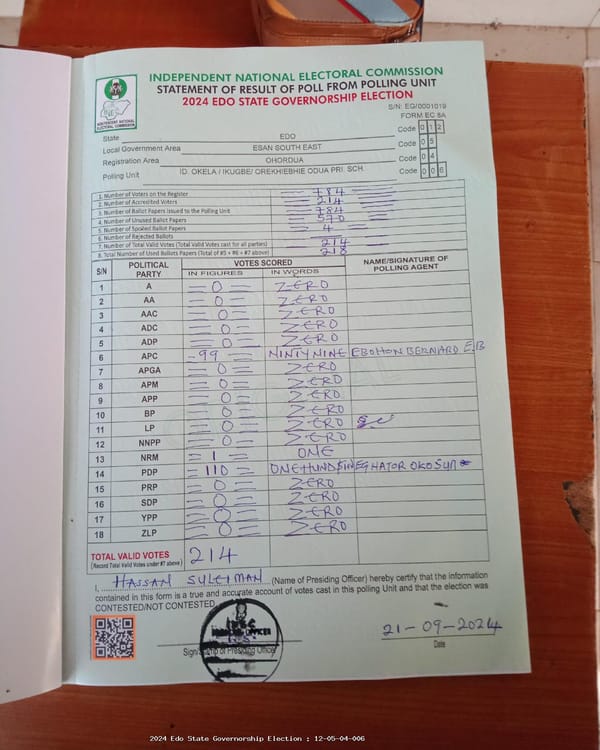 INDEPENDENT NATIONAL ELECTORAL COMMISSION
STATEMENT OF RESULT OF POLL FROM POLLING UNIT
2024 EDO STATE GOVERNORSHIP ELECTION
S/N: EG/0001019
FORM EC 8A
State EDO Code 0 1 2
Local Government Area ESAN SOUTH EAST Code 0 5
Registration Area OHORDUA Code 0 4
Polling Unit ID. OKELA / IKUGBE/ OREKHIEBHIE ODUA PRI. SCH. Code 0 0 6
1. Number of Voters on the Register 784
2. Number of Accredited Voters 214
3. Number of Ballot Papers Issued to the Polling Unit 784
4. Number of Unused Ballot Papers 570
5. Number of Spoiled Ballot Papers 4
6. Number of Rejected Ballots
7. Number of Total Valid Votes (Total Valid Votes cast for all parties) 214
8. Total Number of Used Ballots Papers (Total of #5 + #6 + #7 above) 218
S/N POLITICAL PARTY VOTES SCORED NAME/SIGNATURE OF POLLING AGENT
IN FIGURES IN WORDS
1 A 0 ZERO
2 AA 0 ZERO
3 AAC 0 ZERO
4 ADC 0 ZERO
5 ADP 0 ZERO
6 APC 99 NINTYNINE EBOHON BERNARD E.B
7 APGA 0 ZERO
8 APM 0 ZERO
9 APP 0 ZERO
10 BP 0 ZERO
11 LP 0 ZERO
12 NNPP 0 ZERO
13 NRM 1 ONE
14 PDP 110 ONE HUND
15 PRP 0 ZERO
16 SDP 0 ZERO
17 YPP 0 ZERO
18 ZLP 0 ZERO
TOTAL VALID VOTES 214
(Record Total Valid Votes under #7 above)
I, HASSAN SULEIMAN (Name of Presiding Officer) hereby certify that the information
contained in this form is a true and accurate account of votes cast in this polling Unit and that the election was
CONTESTED/NOT CONTESTED.
21-09-2024
Sign/Stamp of Presiding Officer
Date
2024 Edo State Governorship Election : 12-05-04-006